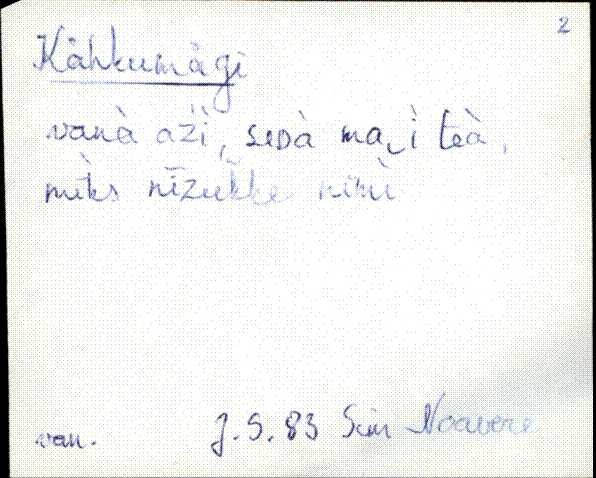 2
Kähkumägi
vanà ažì, seDà ma‿i teà,
mìks nīzukke nimì
van. J. S. 83 Sim Noavere